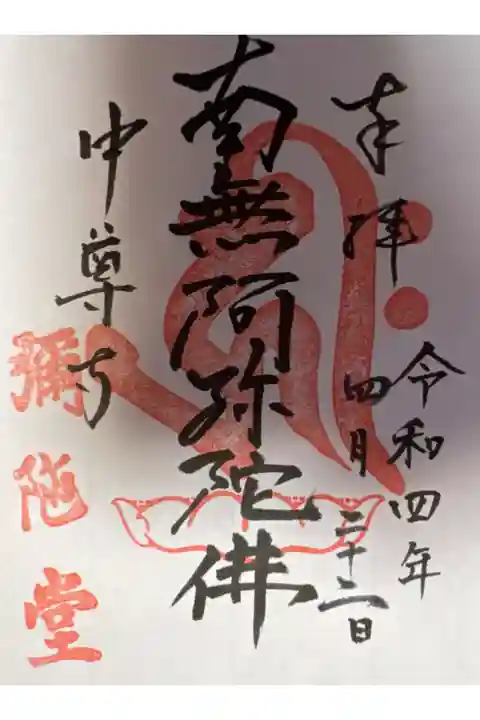 奉拝
令和四年
四月二十二日
南無阿弥陀佛
中尊寺
彌陁堂